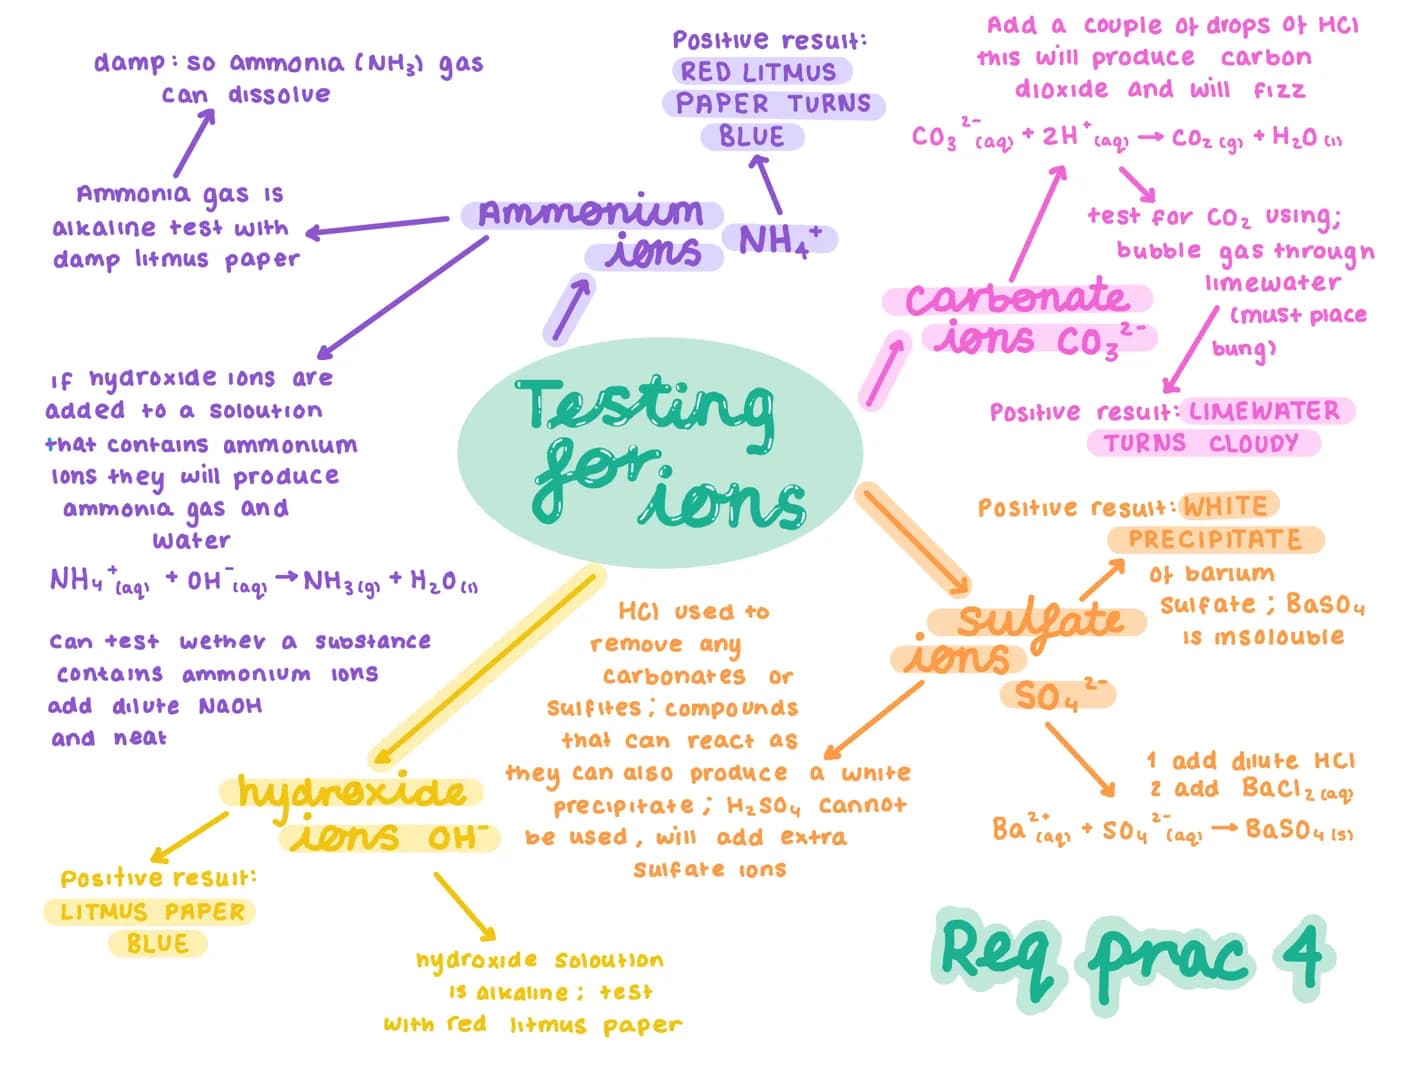 damp: so ammonia (NH₃) gas
can dissolve
Ammonia gas is
alkaline test with
damp litmus paper
Ammonium
ions NH₄⁺
Positive result:
RED LITMUS
PAPER TURNS
BLUE
If hydroxide ions are
added to a soloution
that contains ammonium
ions they will produce
ammonia gas and
water
NH₄⁺(aq) + OH⁻(aq) → NH₃(g) + H₂O(l)
can test wether a substance
contains ammonium ions
add dilute NaOH
and neat
Add a couple of drops of HCl
this will produce carbon
dioxide and will fizz
CO₃²⁻(aq) + 2H⁺(aq) → CO₂(g) + H₂O(l)
test for CO₂ using;
bubble gas through
limewater
(must place
bung)
carbonate
ions CO₃²⁻
Positive result: LIMEWATER
TURNS CLOUDY
Testing
for ions
Positive result: WHITE
PRECIPITATE
of barium
sulfate; BaSO₄
is insolouble
sulfate
ions
SO₄²⁻
HCl used to
remove any
carbonates or
sulfites; compounds
that can react as
they can also produce a white
precipitate; H₂SO₄ cannot
be used, will add extra
sulfate ions
1 add dilute HCl
2 add BaCl₂(aq)
Ba²⁺(aq) + SO₄²⁻(aq) → BaSO₄(s)
hydroxide
ions OH⁻
Positive result:
LITMUS PAPER
BLUE
hydroxide soloution
is alkaline; test
with red litmus paper
Req prac 4